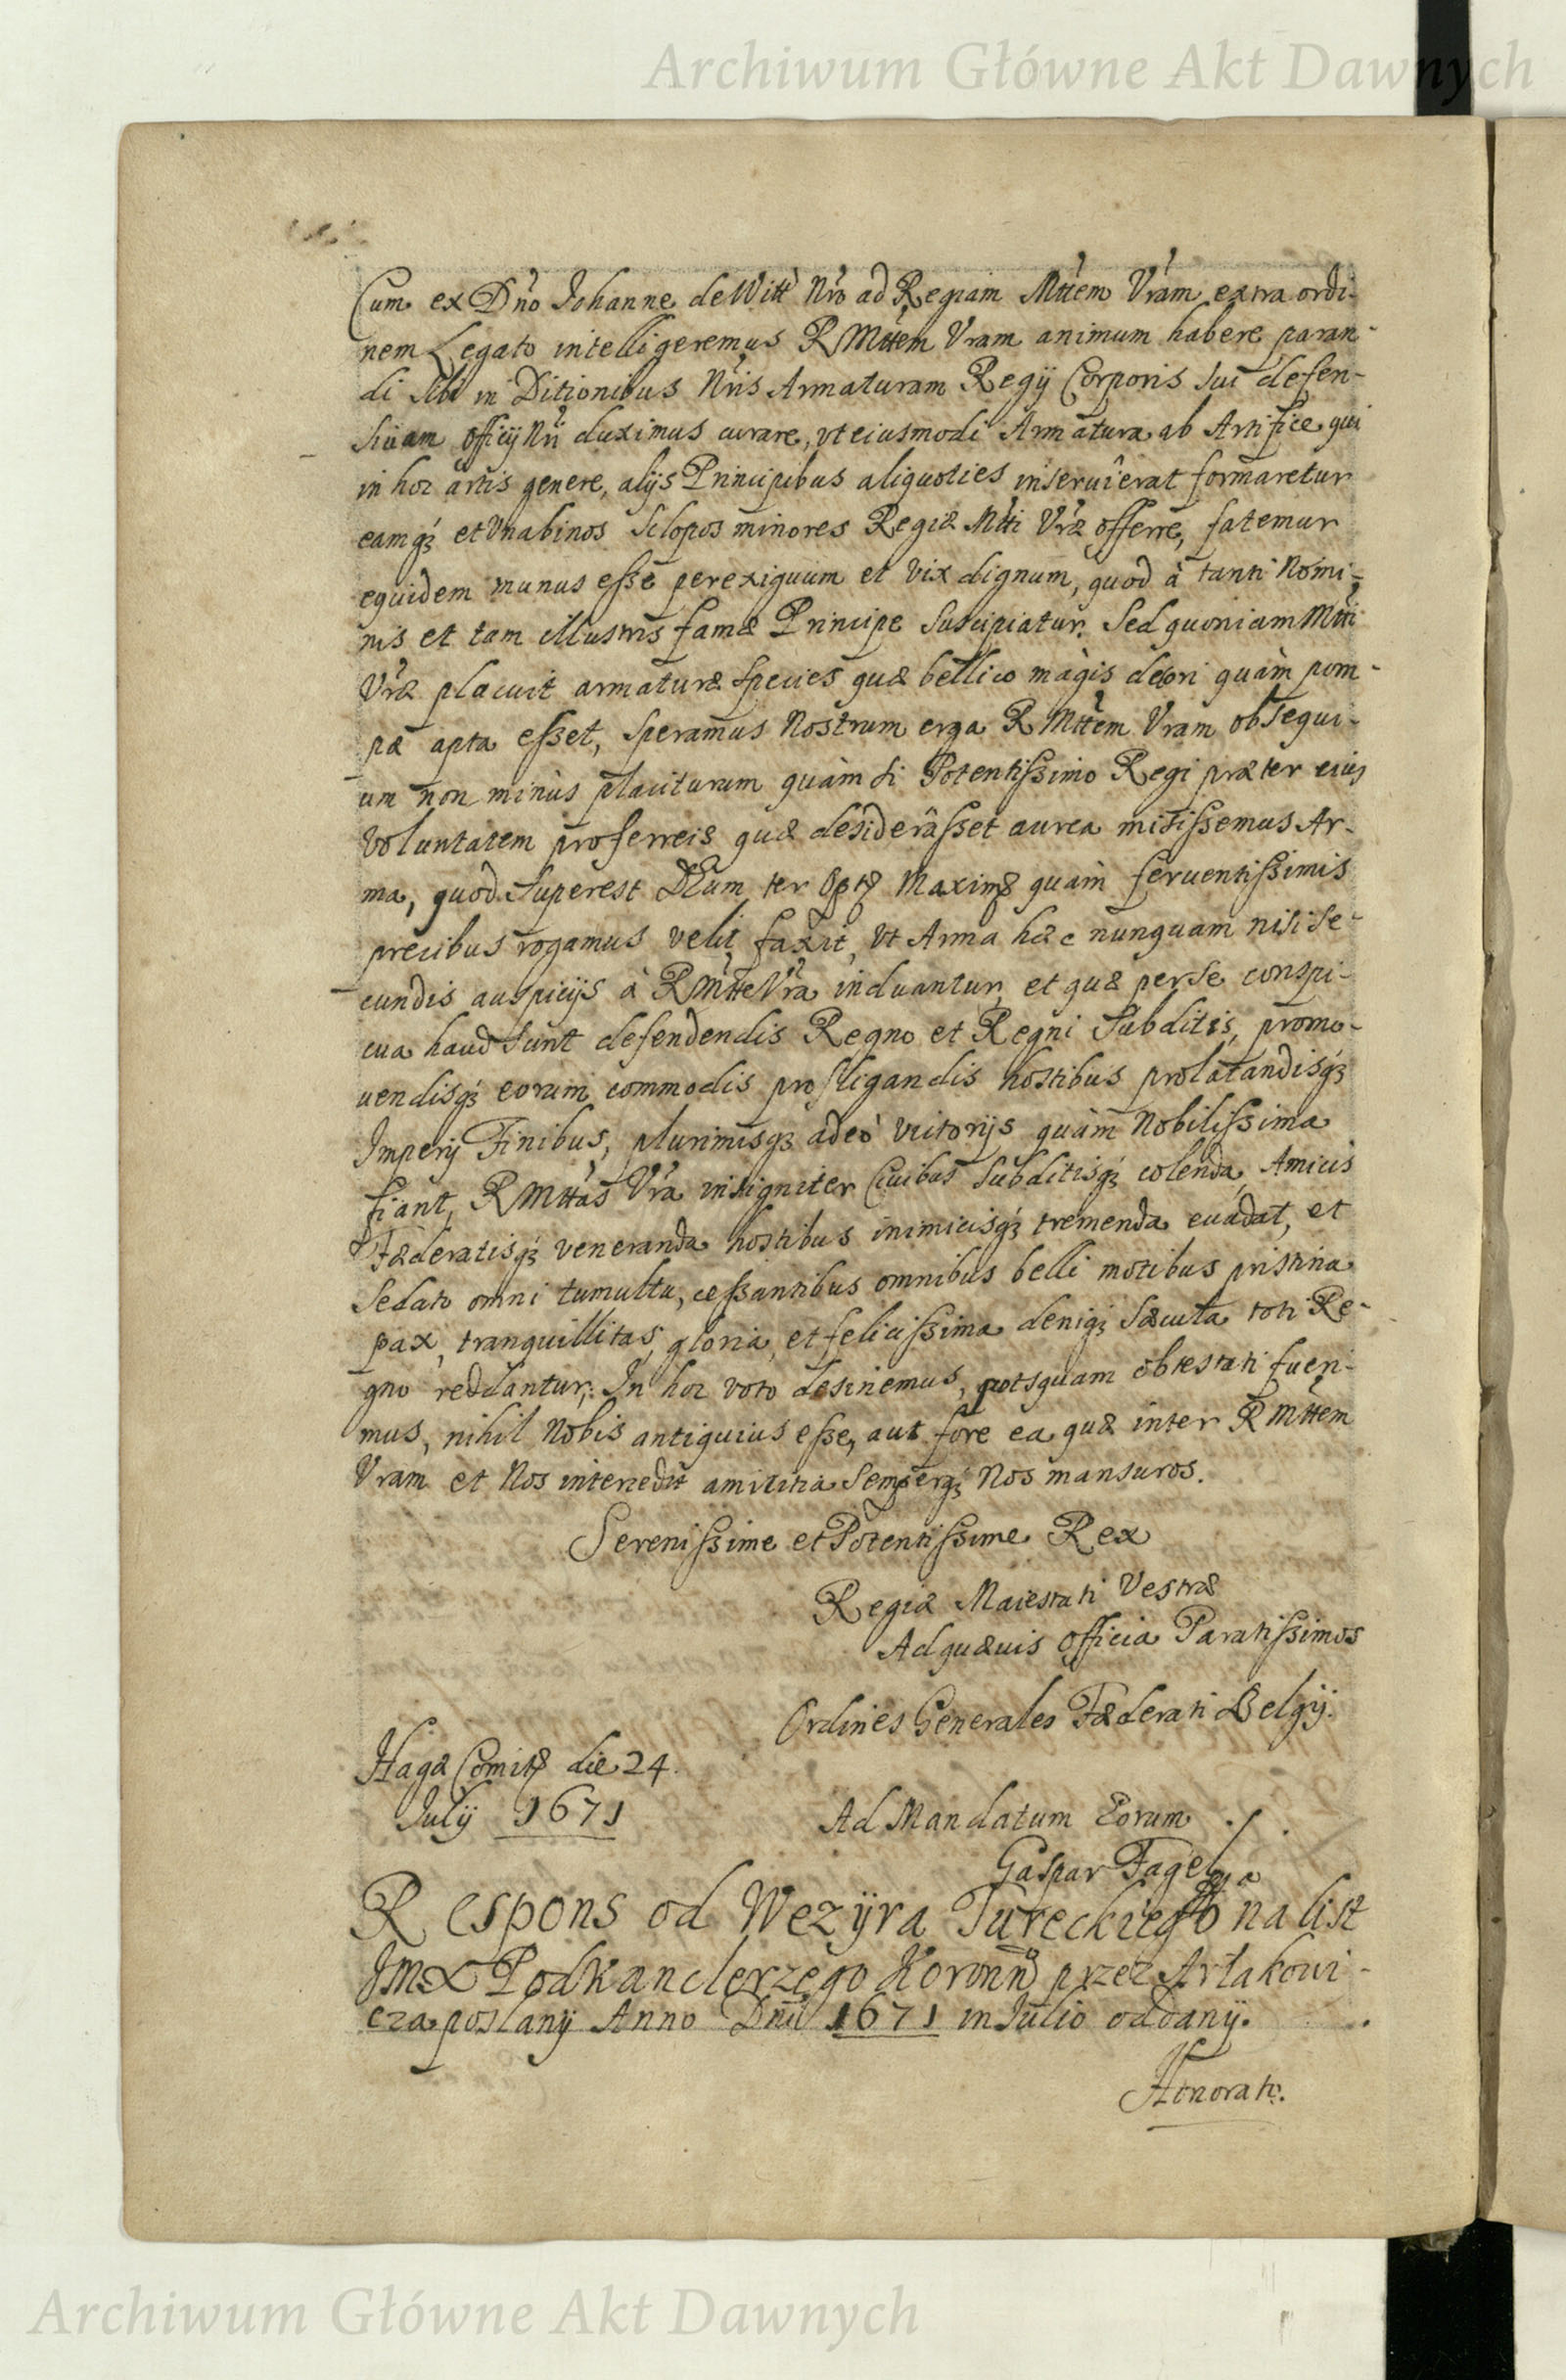 Archiwum Główne Akt Dawnych
Cum ex Dn̄o Johanne de Witt Nr̄o ad Regiam Mttem Vram extra ordi-
nem Legato intelligeremus R Mttem Vram animum habere paran-
di sibi in Ditionibus Nris Armaturam Regij Corporis sui defen-
siuam officij Nri duximus curare, vt eiusmodi Armatura ab Artifice qui
in hoc artis genere, alijs Principibus aliquoties inseruierat formaretur
eamqȝ et Vna binos Sclopos minores Regiæ Mtti Vræ offerre, fatemur
equidem munus esse perexiguum et vix dignum, quod à tanti Nomi-
nis et tam illustris famæ Principe suscipiatur. Sed quoniam Mtti
Vræ placuit armaturæ species quæ bellico magis decori quàm pom-
pæ apta esset, speramus Nostrum erga R Mttem Vram obsequi-
um non minùs placiturum quàm si Potentissimo Regi præter eius
voluntatem pro ferreis quæ desiderâsset aurea misissemus Ar-
ma, quod superest DEum ter Opt9 Maxim9 quàm feruentissimis
precibus rogamus velit, faxit, vt Arma hæc nunquam nisi se-
cundis auspicijs à R Mtte Vra induantur, et quæ per se conspi-
cua haud sunt defendendis Regno et Regni Subditis, promo-
uendisqȝ eorum commodis profligandis hostibus prolatandisqȝ
Imperij Finibus, plurimisqȝ adeò victorijs quàm Nobilissima
fiant, R Mttas Vra insigniter Ciuibus Subditisqȝ colenda, Amicis
Fæderatisqȝ veneranda hostibus inimicisqȝ tremenda euadat, et
sedato omni tumultu, cessantibus omnibus belli motibus pristina
pax, tranquillitas, gloria, et felicissima deniqȝ Sæcula toti Re-
gno reddantur. In hoc voto desinemus, potsquam obtestati fueri-
mus, nihil Nobis antiquius esse, aut fore ea quæ inter R Mttem
Vram et Nos intercedit amicitia Semperqȝ Nos mansuros.
Serenissime et Potentissime Rex
Regiæ Maiestati Vestræ
Ad quæuis officia Paratissimos
Ordines Generales Fæderati Belgij.
Hagæ Comit9 die 24.
Julij 1671
Ad Mandatum Eorum ./.
Gaspar Fagel
Respons od Wezÿra Tureckiego na list
JmX Podkanclerzego Koronno przez Arłakowi-
cza posłanÿ Anno Dnii 1671 in Julio oddanÿ.
Honorato.
Archiwum Główne Akt Dawnych